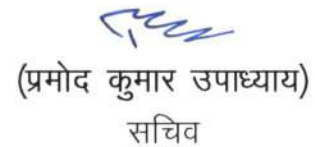 (प्रमोद कुमार उपाध्याय)
सचिव